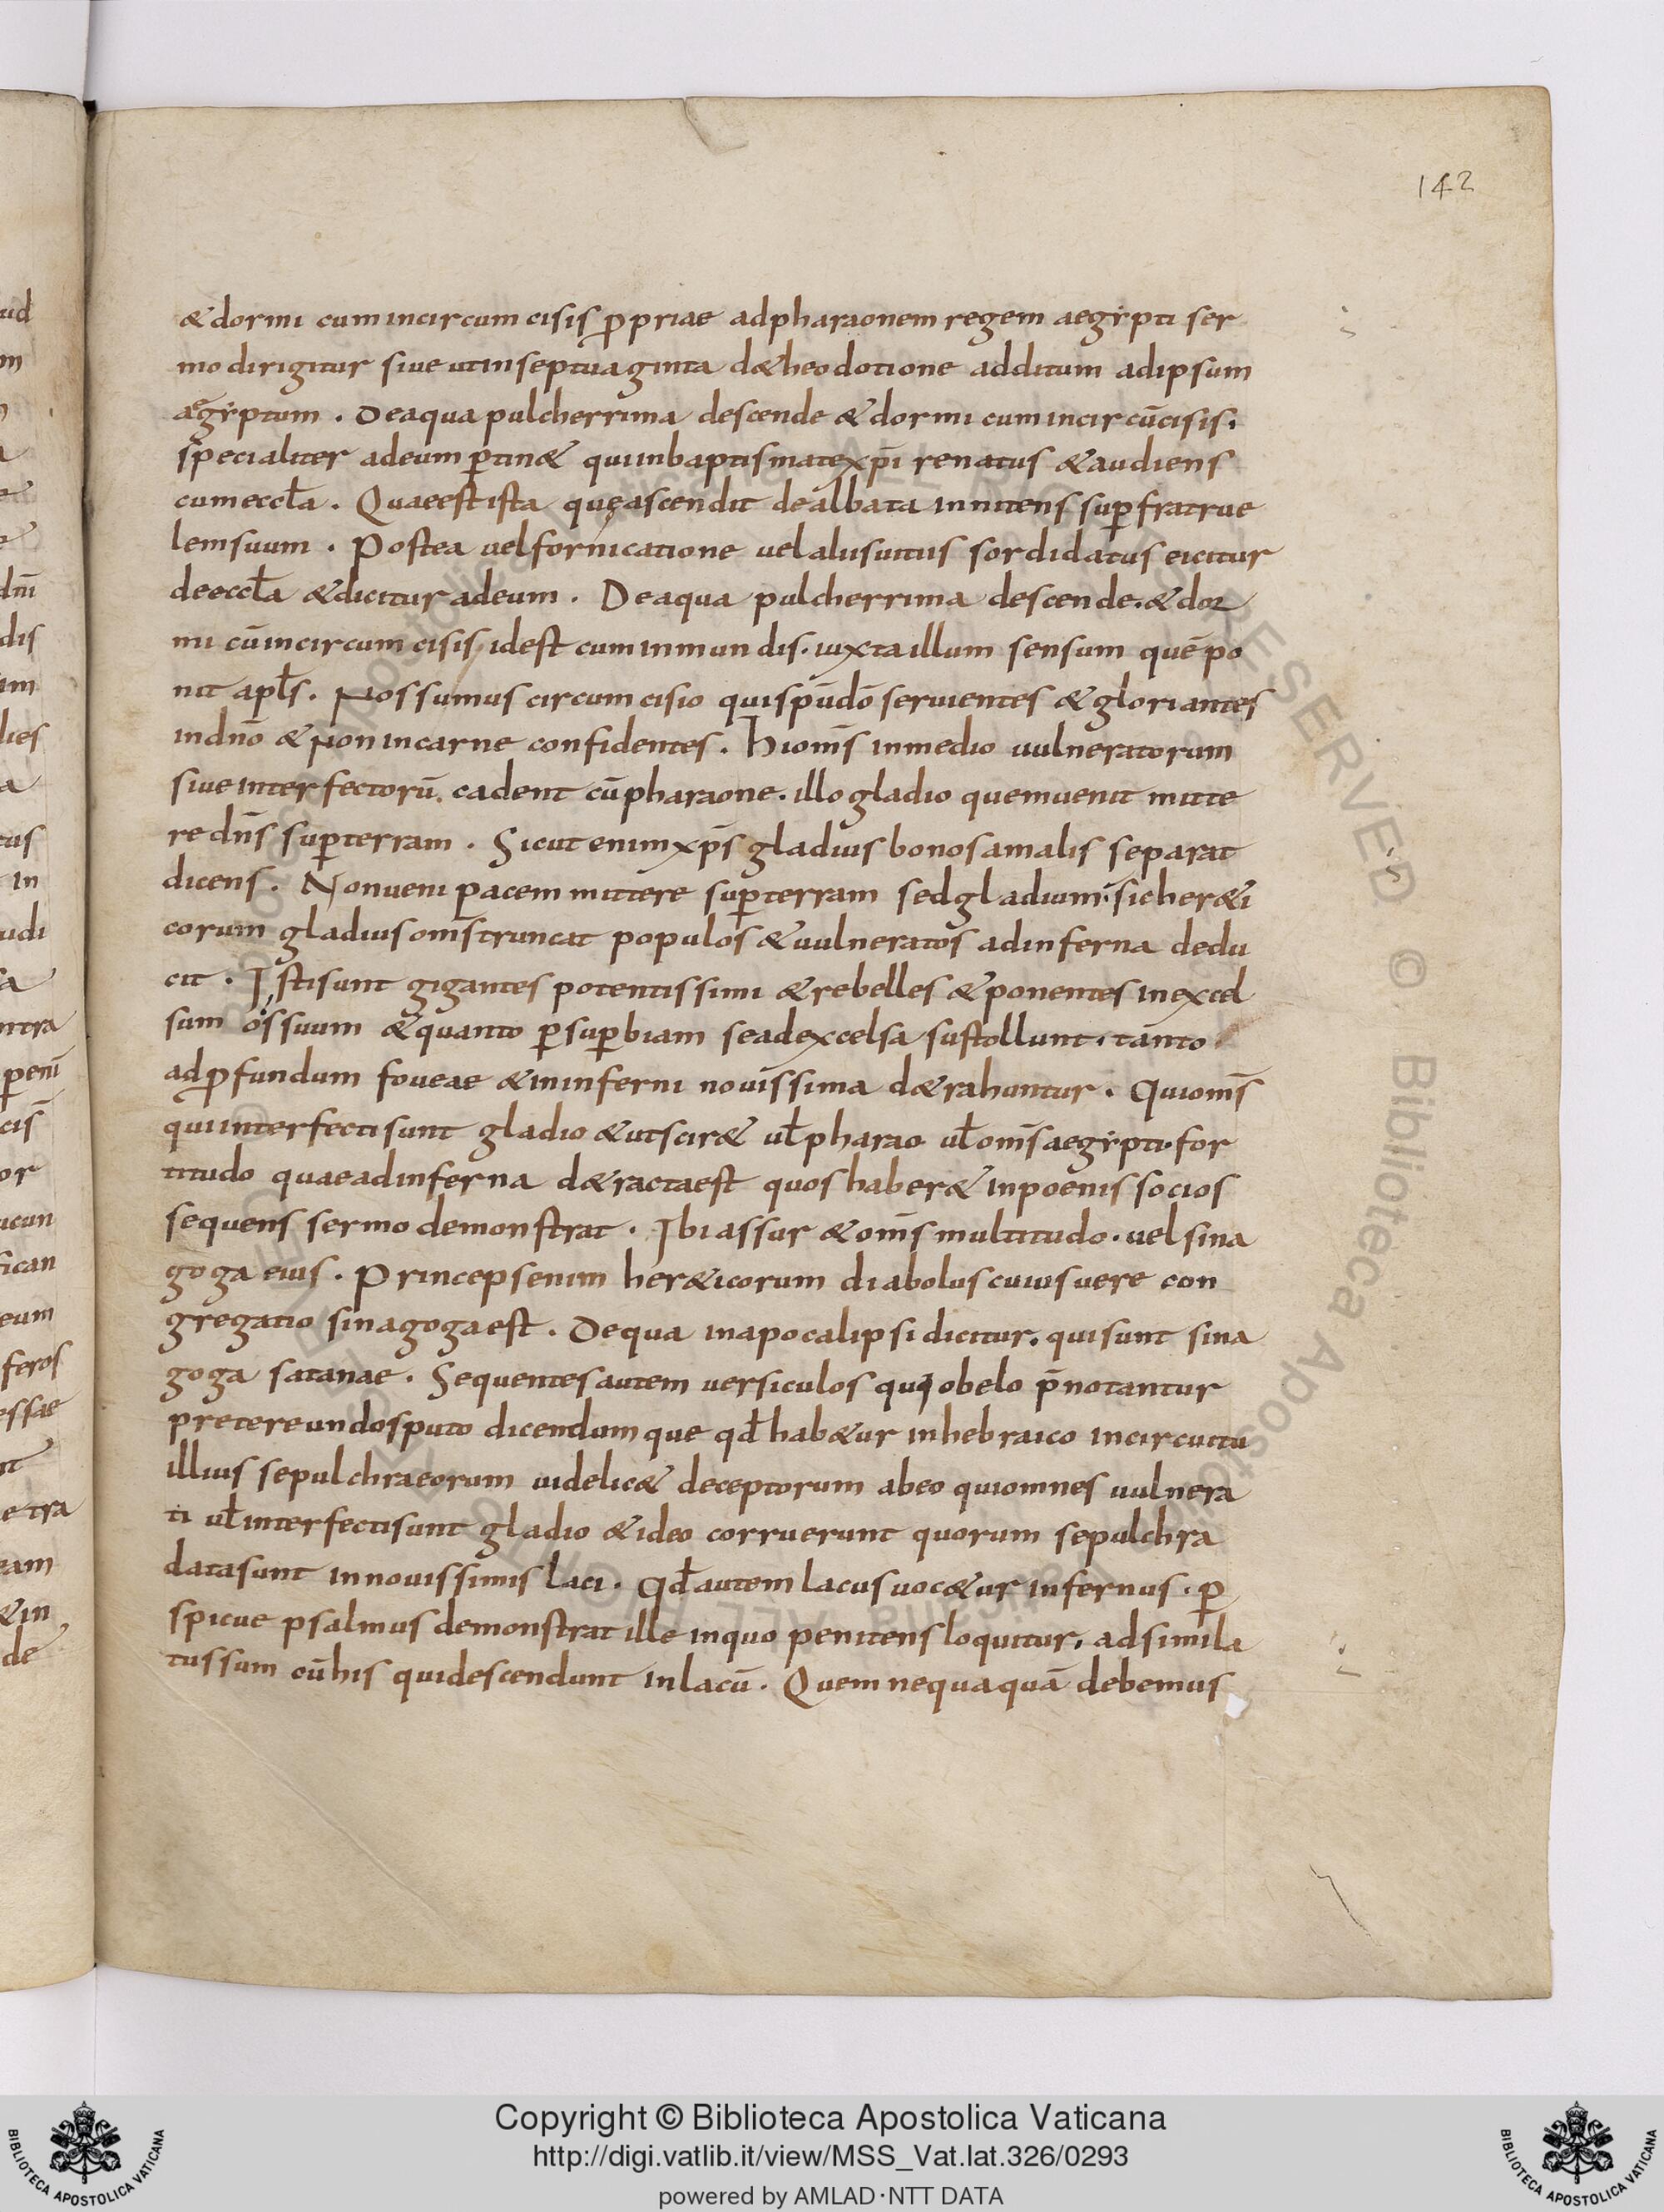 142
& dormi cum incircumcisis ꝓpriae ad pharaonem regem aegẏpti ser
mo dirigitur siue ut in septuaginta & theodotione additum ad ipsum
aegẏptum . De aqua pulcherrima descende & dormi cum incircūcisis.
specialiter ad eum ꝑtin& qui in baptismate xp̄i renatus & audiens
cum eccƚa . Quae est ista quę ascendit dealbata innitens suꝑ fratrue
lem suum . Postea uel fornicatione uel aliis uitiis sordidatus eicitur
de eccƚa & dicitur ad eum . De aqua pulcherrima descende . & dor
mi cū incircumcisis idest cum inmundis . iuxta illum sensum quē po
nit apƚs . Nos sumus circumcisio qui sp̄u dō seruientes & gloriantes
in dn̄o & non in carne confidentes . Hi om̄s in medio uulneratorum
siue interfectorū cadent cū pharaone . illo gladio quem uenit mitte
re dn̄s suꝑ terram . Sicut enim xp̄s gladius bonos a malis separat
dicens . Non ueni pacem mittere suꝑ terram sed gladium . sic her&i
corum gladius om̄s truncat populos & uulneratos ad inferna dedu
cit . Isti sunt gigantes potentissimi & rebelles & ponentes in excel
sum os suum & quanto ꝑ suꝑbiam se ad excelsa sustollunt . tanto
ad ꝓfundum foueae & in inferni nouissima d&rahuntur . Qui om̄s
qui interfecti sunt gladio & ut scir& uƚ pharao uƚ om̄s aegẏpti for
titudo quae ad inferna d&racta est quos haber& in poenis socios
sequens sermo demonstrat . Ibi assur & om̄s multitudo . uel sina
goga eius . Princeps enim her&icorum diabolus cuius uere con
gregatio sinagoga est . De qua in apocalipsi dicitur . qui sunt sina
goga satanae . Sequentes autem uersiculos qui obelo p̄notantur
pretereundos puto dicendumque qđ hab&ur in hebraico in circuitu
illius sepulchra eorum uidelic& deceptorum ab eo qui omnes uulnera
ti uƚ interfecti sunt gladio & ideo corruerunt quorum sepulchra
data sunt in nouissimis laci . Qđ autem lacus uoc&ur infernus . ꝑ
spicue psalmus demonstrat ille in quo penitens loquitur . adsimila
tus sum cū his qui descendunt in lacū . Quem nequaquā debemus
Copyright © Biblioteca Apostolica Vaticana
http://digi.vatlib.it/view/MSS_Vat.lat.326/0293
powered by AMLAD·NTT DATA